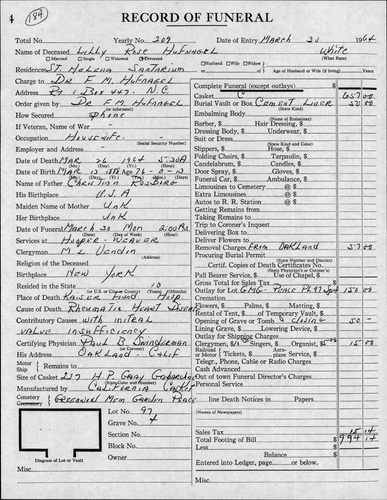 4
184
RECORD OF FUNERAL
Total No. Yearly No. 209 Date of Entry March 30 1964
Name of Deceased Lilly Rose Hufnagel White
(What Race)
Married Single Widowed Divorced Husband Wife Widow
of Age of Husband or Wife (if living) Years
Residence St. Helena Sanitarium
Charge to Dr F. M. Hufnagel
Address Rt 1 Box 447- N.C.
Order given by Dr F. M. Hufnagel
How Secured phone
If Veteran, Name of War
Occupation Housewife
(Social Security Number)
Employer and Address
Date of Death Mar 26 1964 5:30A
Date of Birth Mar Age 76-0-
Name of Father
His Birthplace U.S.A
Maiden Name of Mother Unk
Her Birthplace Unk
Date of Funeral March 30 Mon 2:00 P.M.
Services at Hooper-Weaver
Clergyman M. L. Venden
Religion of the Deceased
Birthplace New York
Resided in the State 10
Place of Death Kaiser Found Hosp
Cause of Death Rheumatic Heart Disease
Contributory Causes with mitral
valve insufficiency
Certifying Physician Paul B. Swinderman
His Address Oakland Calif
Motor Ship Remains to
Size of Casket 2/7 H.P. Gray
Manufactured by California Casket
Cemetery Greenwood Mem Garden Peace
Lot No. 97
Grave No. 4
Section No.
Block No.
Owner
Diagram of Lot or Vault
Misc.
Complete Funeral (except outlays) $
Casket 657 00
Burial Vault or Box Cement Liner 50
Embalming Body
(Name of Embalmer)
Barber, $ Hair Dressing, $
Dressing Body, $ Underwear, $
Suit or Dress
(State Kind and Color)
Slippers, $ Hose, $
Folding Chairs, $ Tarpaulin, $
Candelabrum, $ Candles, $
Door Spray, $ Gloves, $
Funeral Car, $ Ambulance, $
Limousines to Cemetery @ $
Extra Limousines @ $
Autos to R. R. Station @ $
Getting Remains from
Taking Remains to
Trip to Coroner's Inquest
Delivering Box to
Deliver Flowers to
Removal Charges from Oakland 57 00
Procuring Burial Permit
Certif. Copies of Death Certificates No.
Pall Bearer Service, $ of Chapel, $
Gross Total for Sales Tax
Outlay for Lot GMG- Peace 150 00
Cremation
Flowers, $ Palms, $ Matting, $
Rental of Tent, $ of Temporary Vault, $
Opening of Grave or Tomb & Lining 50 -
Lining Grave, $ Lowering Device, $
Outlay for Shipping Charges
Clergymen, $ Singers, $ Organist, $ 15 00
Telegr., Phone, Cable or Radio Charges
Cash Advanced
Out of town Funeral Director's Charges
Personal Service
line Death Notices in Papers
(Names of Newspapers)
Sales Tax 15 14
Total Footing of Bill $ 994 14
Less
Balance $
Entered into Ledger, page or below.
Misc.